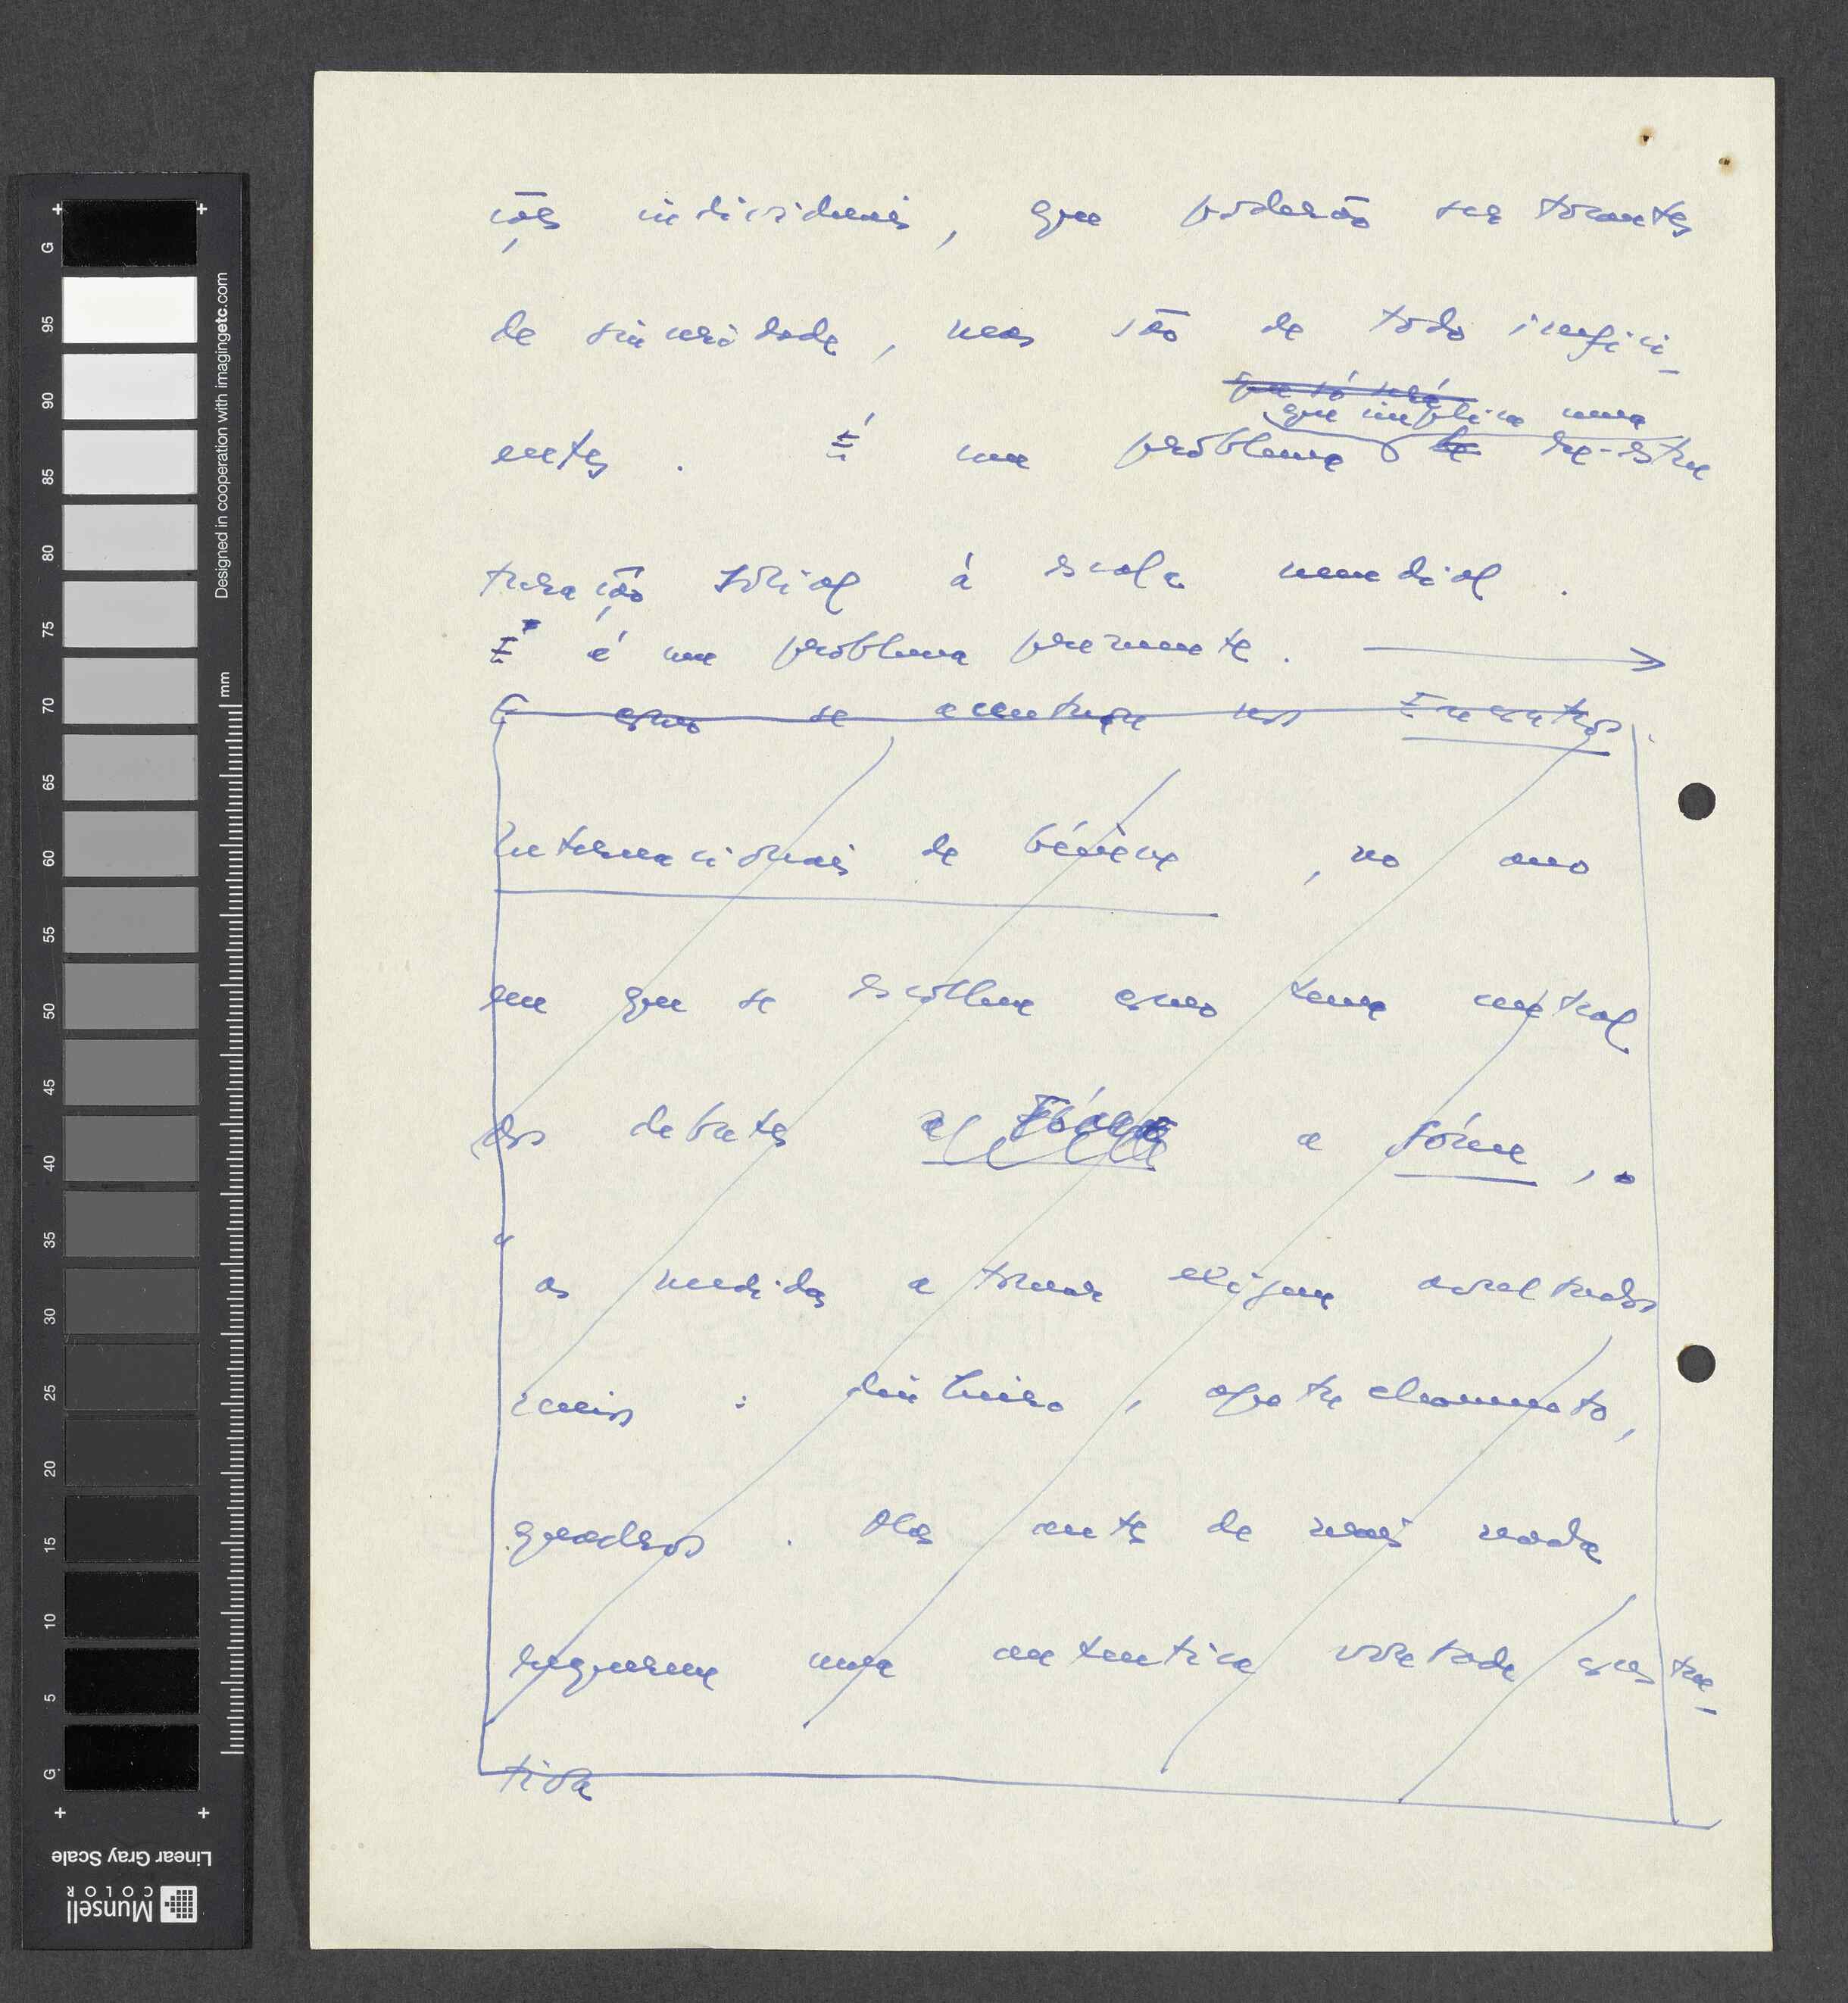 ções individuais, que poderão ser tocantes
de sinceridade, mas são de todo inefici-
que só será
que implica uma
entes. É um problema de re-estru
turação social à escala mundial.
E é um problema premente.
E como se acentuou nos Encontros
Internacionais de Génève, no ano
em que se escolheu como tema central
dos debates a Fome a fome,
as medidas a tomar exigem
reais: dinheiro, apetrechamento,
quadros. Mas antes de mais nada
requerem uma autêntica vontade constru-
tiva
G 95 90 85 80 75 70 65 60 55 50 45 40 35 30 25 20 15 10 5 G
mm
Designed in cooperation with imagingetc.com
Linear Gray Scale
Munsell
COLOR